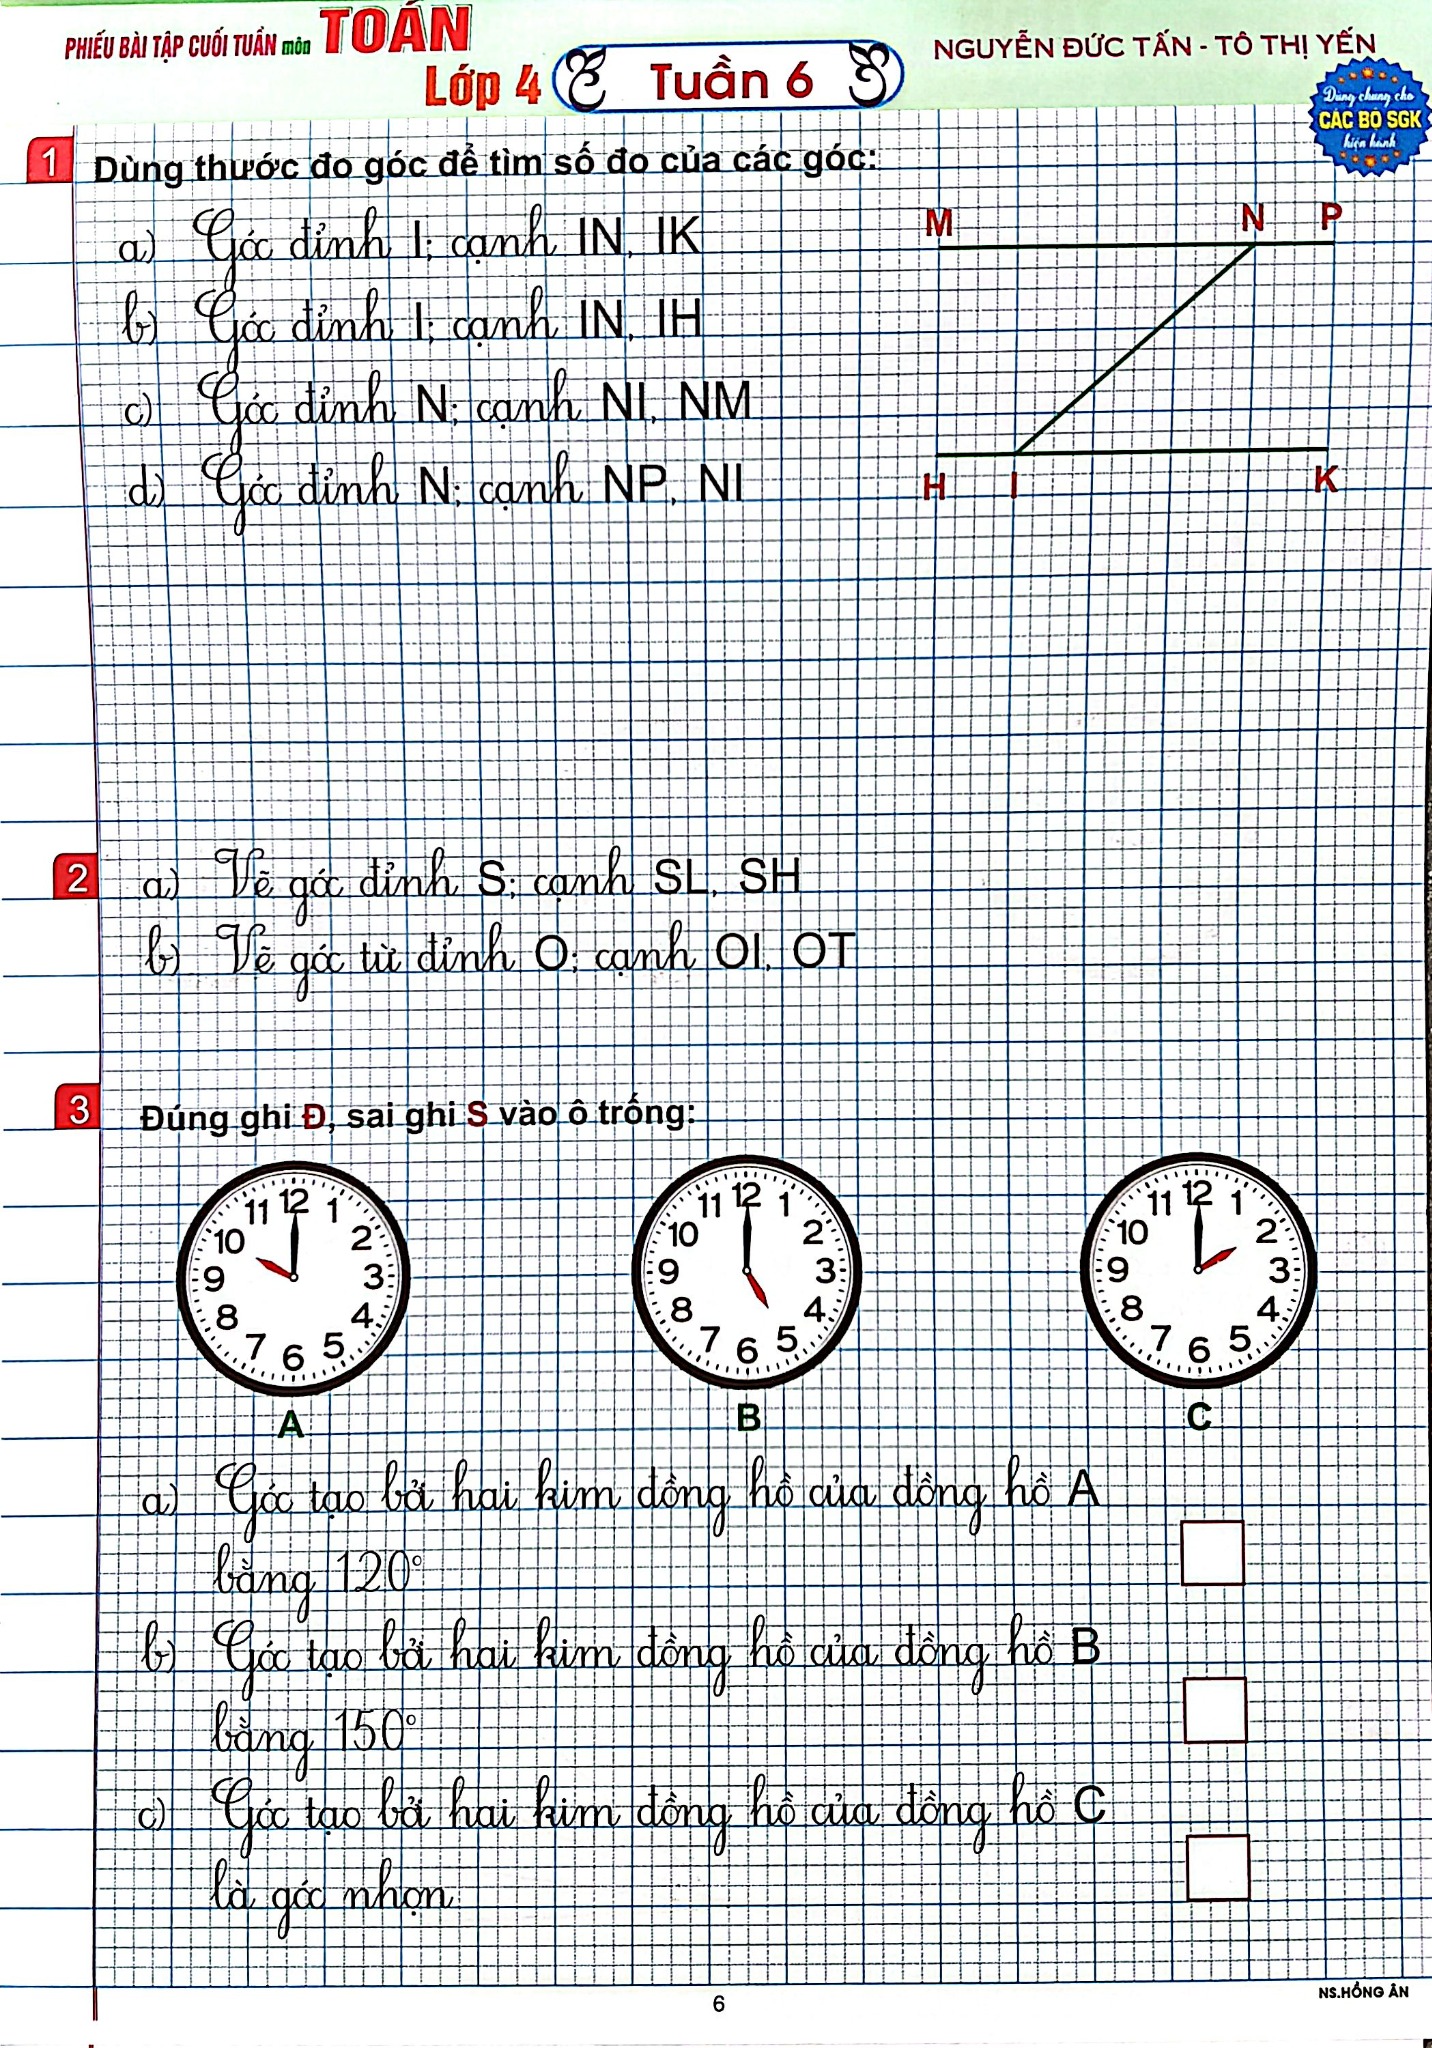 PHIẾU BÀI TẬP CUỐI TUẦN môn TOÁN
Lớp 4
Tuần 6
NGUYỄN ĐỨC TẤN - TÔ THỊ YẾN
Dùng chung cho
CÁC BỘ SGK
hiện hành
1 Dùng thước đo góc để tìm số đo của các góc:
a) Góc đỉnh I; cạnh IN, IK
b) Góc đỉnh I; cạnh IN, IH
c) Góc đỉnh N; cạnh NI, NM
d) Góc đỉnh N; cạnh NP, NI
M N P
H I K
2 a) Vẽ góc đỉnh S; cạnh SL, SH
b) Vẽ góc từ đỉnh O; cạnh OI, OT
3 Đúng ghi Đ, sai ghi S vào ô trống:
12 1 2 3 4 5 6 7 8 9 10 11
12 1 2 3 4 5 6 7 8 9 10 11
12 1 2 3 4 5 6 7 8 9 10 11
A B C
a) Góc tạo bởi hai kim đồng hồ của đồng hồ A
bằng 120°
b) Góc tạo bởi hai kim đồng hồ của đồng hồ B
bằng 150°
c) Góc tạo bởi hai kim đồng hồ của đồng hồ C
là góc nhọn
6
NS.HỒNG ÂN